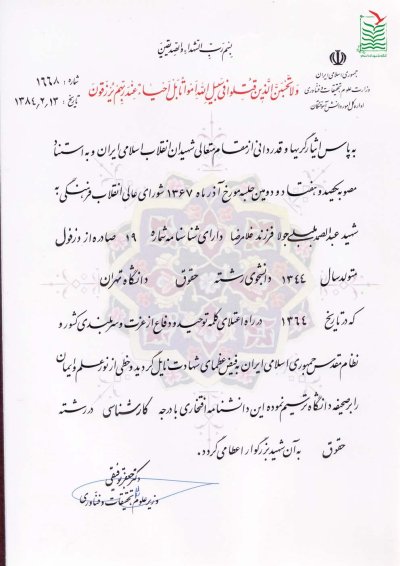 بسم رب الشهداء والصدیقین
ولا تحسبن الذین قتلوا فی سبیل الله امواتا بل احیاء عند ربهم یرزقون
جمهوری اسلامی ایران
وزارت علوم، تحقیقات و فناوری
اداره کل امور دانش آموختگان
شماره : ۱۶۶۸
تاریخ : ۱۳۸۴،۲،۱۳
به پاس ایثارگریها و قدردانی از مقام متعالی شهیدان انقلاب اسلامی ایران و به استناد
مصوبه یکصد و هفتاد و دومین جلسه مورخ آذر ماه ۱۳۶۷ شورای عالی انقلاب فرهنگی به
شهید عبدالصمد بلبلی جولا فرزند غلامرضا دارای شناسنامه شماره ۱۹ صادره از دزفول
متولد سال ۱۳۴۴ دانشجوی رشته حقوق دانشگاه تهران
که در تاریخ ۱۳۶۴ در راه اعتلای کلمه توحید و دفاع از عزت و سربلندی کشور و
نظام مقدس جمهوری اسلامی ایران به فیض عظمای شهادت نایل گردید و خطی از نور علم و ایمان
را بر صحیفه دانشگاه ترسیم نموده این دانشنامه افتخاری با درجه کارشناسی در رشته
حقوق به آن شهید بزرگوار اعطا می گردد.
دکتر جعفر توفیقی
وزیر علوم، تحقیقات و فناوری